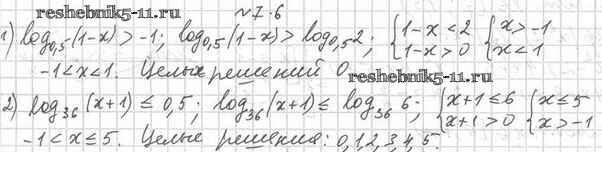 reshebnik5-11.ru
№7.6
1) log₀,₅(1-x) > -1; log₀,₅(1-x) > log₀,₅2; { 1-x < 2 { x > -1
1-x > 0 x < 1
-1 < x < 1. Целых решений 0
reshebnik5-11.ru
2) log₃₆(x+1) ≤ 0,5; log₃₆(x+1) ≤ log₃₆6; { x+1 ≤ 6 { x ≤ 5
x+1 > 0 x > -1
-1 < x ≤ 5. Целые решения: 0,1,2,3,4,5.